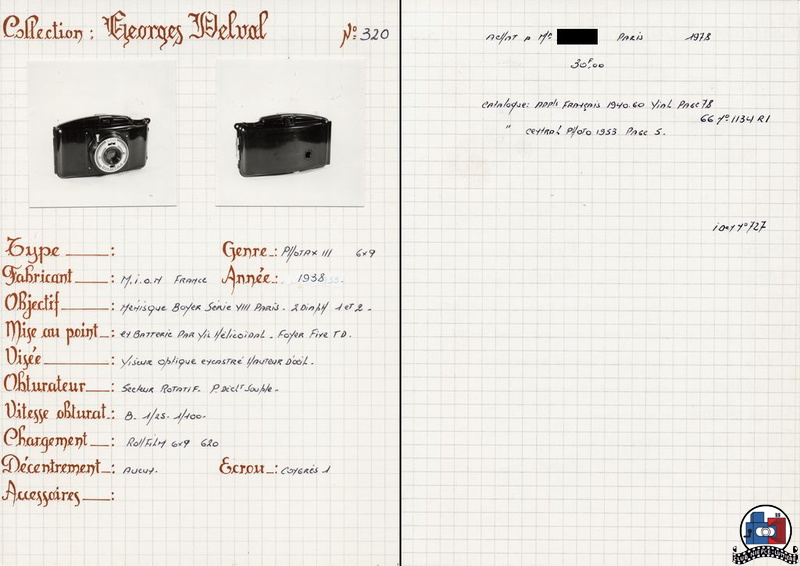 Collection : Georges Delval
N° 320
Type : 
Genre : PHOTAX III 6x9
Fabricant : M.I.O.M FRANCE
Année : 1938
Objectif : Ménisque BOYER Série VIII PARIS. 2 Diaph 1 et 2.
Mise au point : en Batterie PAR Vis Hélicoïdal. FOYER Fixe T.D.
Visée : Viseur optique encastré Hauteur D'œil.
Obturateur : Secteur ROTATIF. P. Déclt Souple.
Vitesse obturat : B. 1/25 - 1/100.
Chargement : Roll FILM 6x9 620
Décentrement : Aucun.
Ecrou : CONGRÈS 1
Accessoires :
ACHAT A Mr PARIS 1978
30F,00
Catalogue: APPls FRANÇAIS 1940.60 Vial PAGE 78
66 N° 1134 R1
" CENTRAL PHOTO 1953 PAGE 5.
N° 727